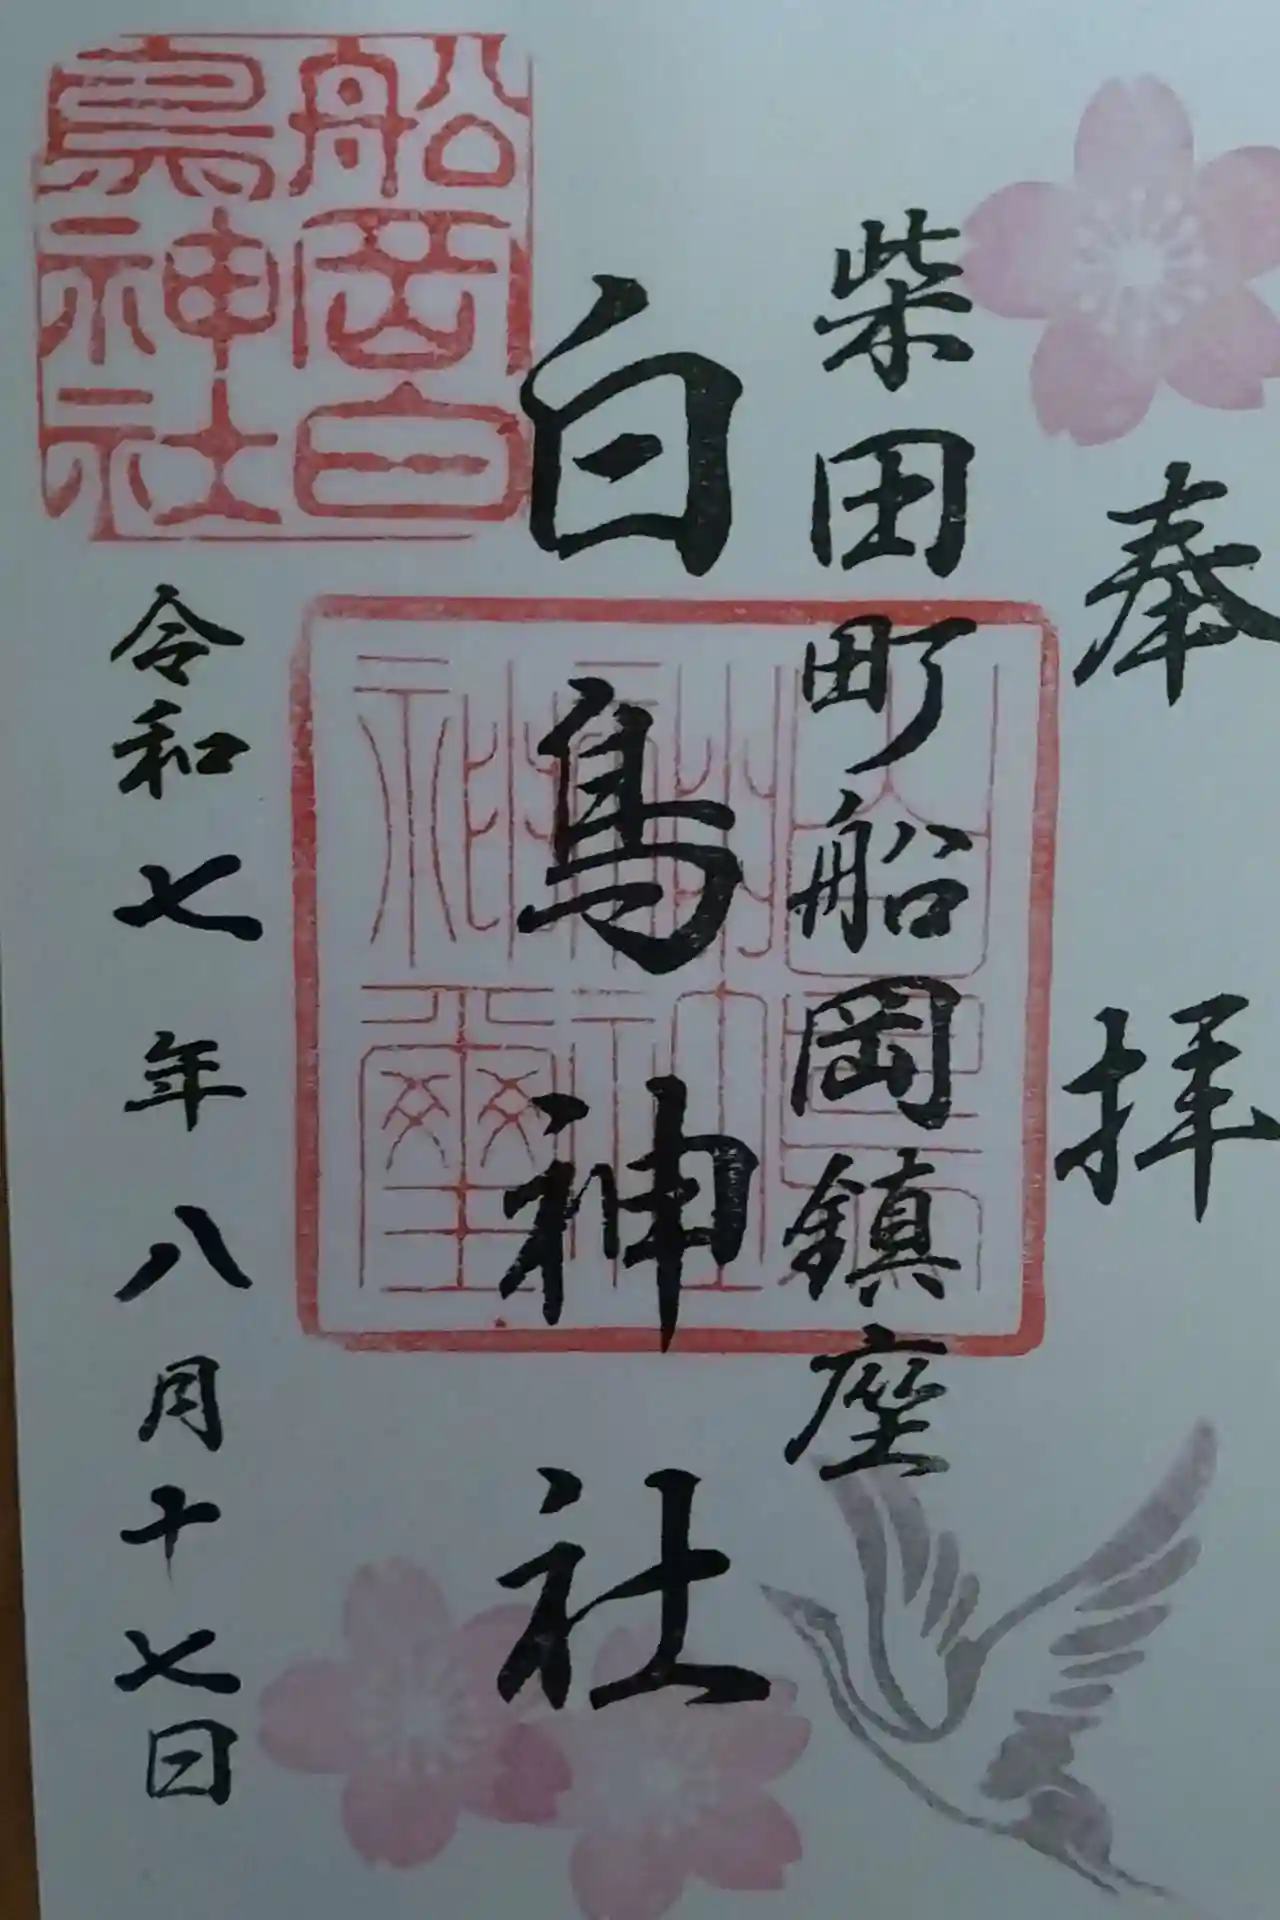 奉拝
柴田町船岡鎮座
白鳥神社
船岡白
鳥神社
令和七年八月十七日